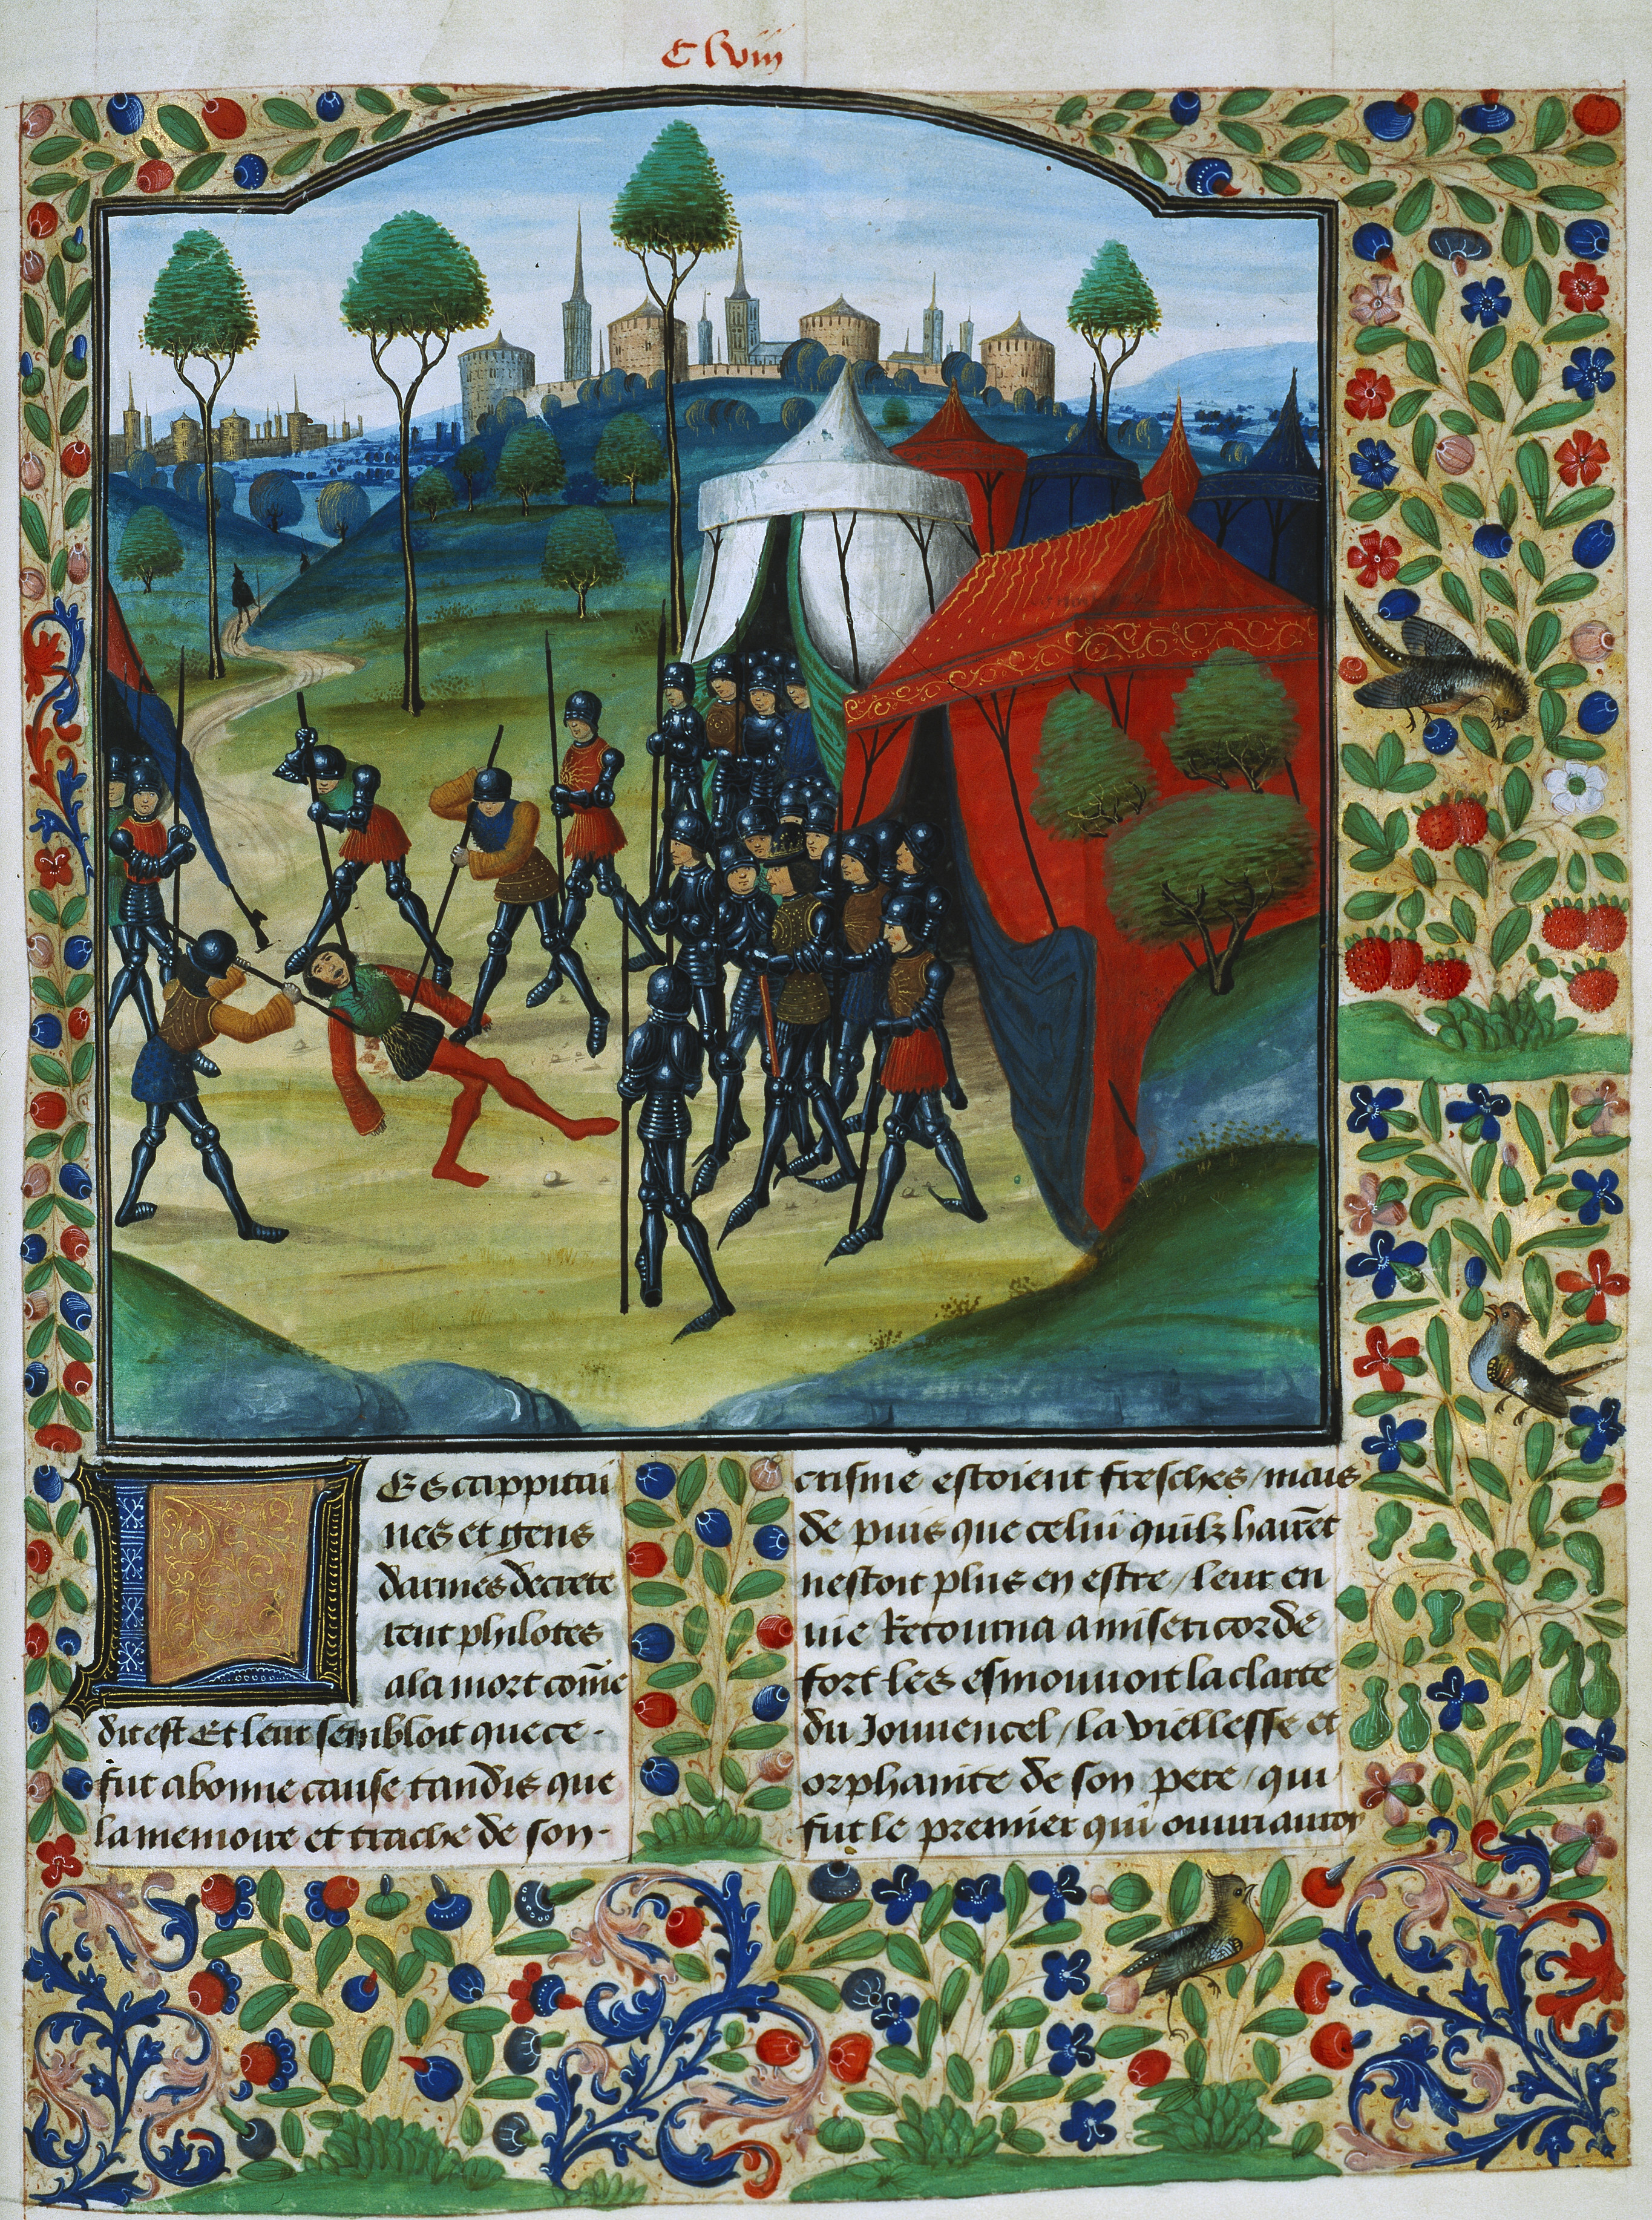 C lviii
Les cappitai
nes et gens
darmes decrete
rent philotes
a la mort com̄e
dit est Et leur sembloit que ce
fut a bonne cause tandis que
la memoire et trache de son
crisme estoient fresches / mais
de puis que celui quilz hairet
nestoit plus en estre / leur en
uie Retourna a misericorde
fort les esmouuoit la clarte
du Jouuencel / la viellesse et
orphanite de son pere / qui
fut le premier qui ouuri